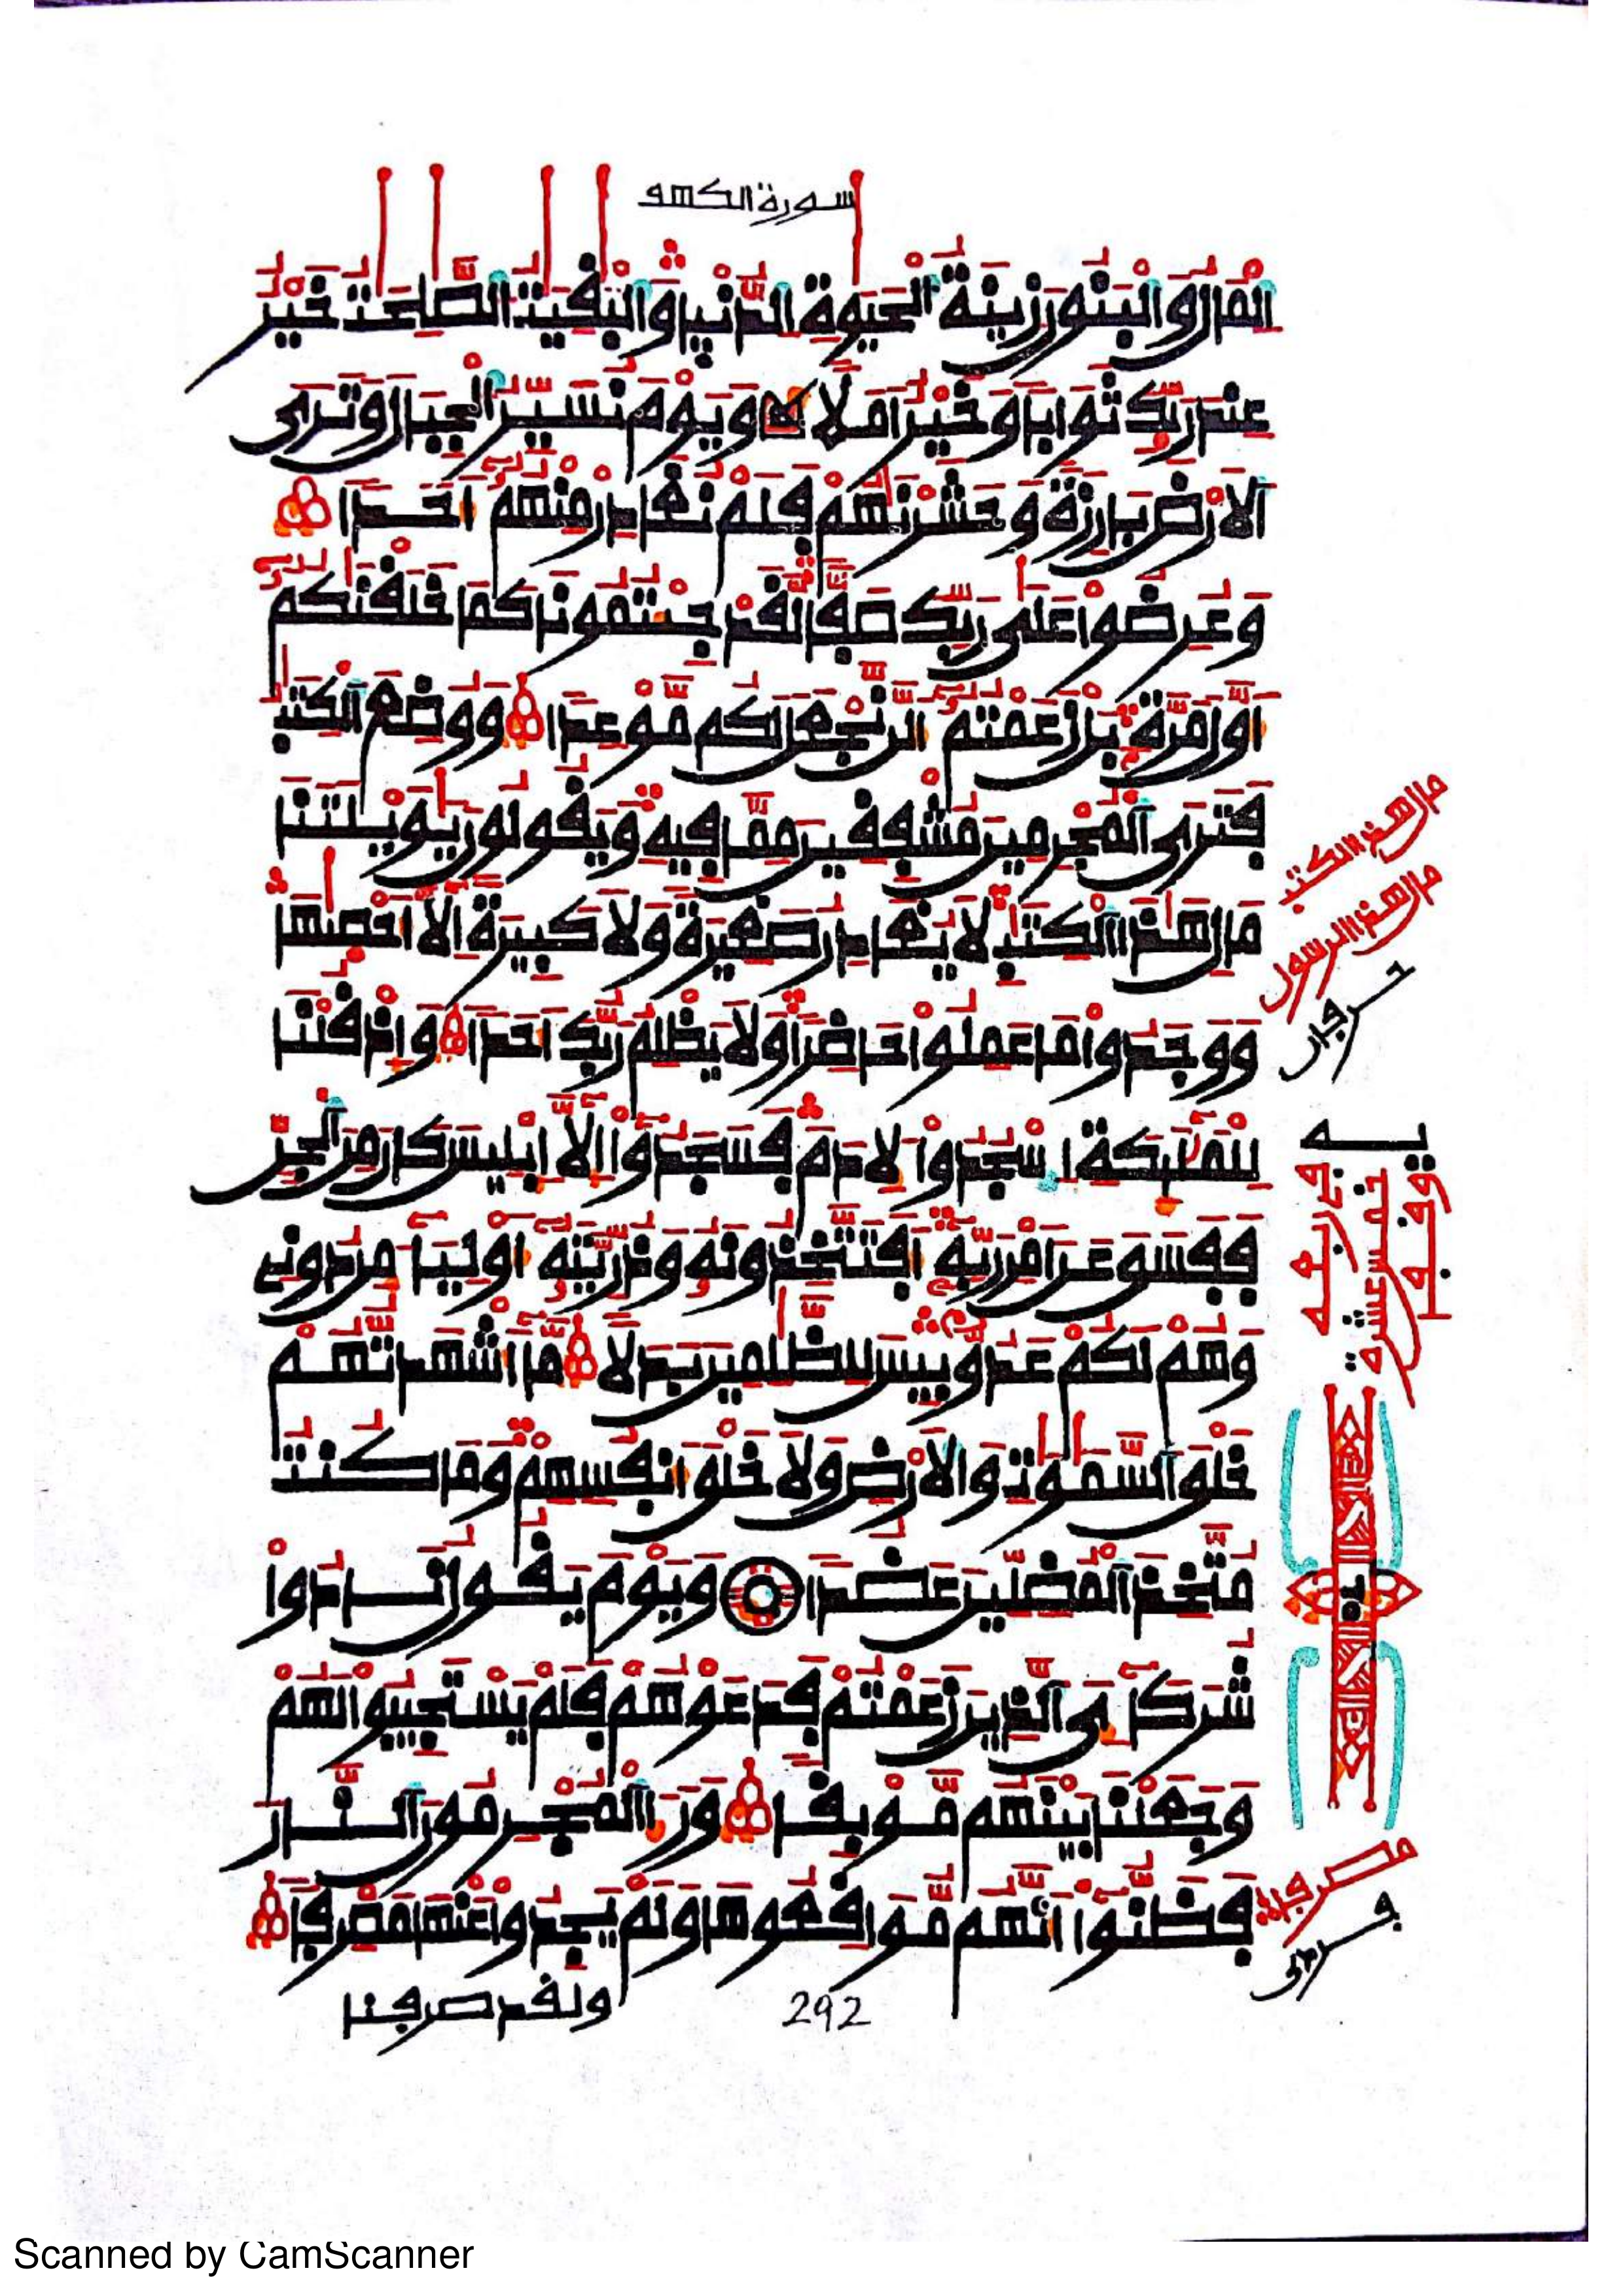 سورة الكهف
اَلْمَالُ وَالْبَنُونَ زِينَةُ الْحَيَوٰةِ الدُّنْيَا وَالْبَٰقِيَٰتُ الصَّٰلِحَٰتُ خَيْرٌ
عِندَ رَبِّكَ ثَوَابًا وَخَيْرٌ اَمَلًا وَيَوْمَ نُسَيِّرُ الْجِبَالَ وَتَرَى
اَلَارْضَ بَارِزَةً وَحَشَرْنَٰهُمْ فَلَمْ نُغَادِرْ مِنْهُمُ أَحَدًا
وَعُرِضُوا عَلَىٰ رَبِّكَ صَفًّا لَّقَدْ جِئْتُمُونَا كَمَا خَلَقْنَٰكُمُ
أَوَّلَ مَرَّةٍ بَلْ زَعَمْتُمُ أَلَّن نَّجْعَلَ لَكُم مَّوْعِدًا وَوُضِعَ الْكِتَٰبُ
فَتَرَى الْمُجْرِمِينَ مُشْفِقِينَ مِمَّا فِيهِ وَيَقُولُونَ يَٰوَيْلَتَنَا
مَالِ هَٰذَا الْكِتَٰبِ لَا يُغَادِرُ صَغِيرَةً وَلَا كَبِيرَةً اِلَّا أَحْصَىٰهَا
وَوَجَدُوا مَا عَمِلُوا حَاضِرًا وَلَا يَظْلِمُ رَبُّكَ أَحَدًا وَإِذْ قُلْنَا
لِلْمَلَٰٓئِكَةِ اِسْجُدُوا لِأَدَمَ فَسَجَدُوا إِلَّا إِبْلِيسَ كَانَ مِنَ الْجِنِّ
فَفَسَقَ عَنَ اَمْرِ رَبِّهِ أَفَتَتَّخِذُونَهُ وَذُرِّيَّتَهُ أَوْلِيَآءَ مِن دُونِي
وَهُمْ لَكُمْ عَدُوٌّ بِيسَ لِلظَّٰلِمِينَ بَدَلًا مَّا أَشْهَدتُّهُمْ
خَلْقَ السَّمَٰوَٰتِ وَالَارْضِ وَلَا خَلْقَ أَنفُسِهِمْ وَمَا كُنتُ
مُتَّخِذَ الْمُضِلِّينَ عَضُدًا وَيَوْمَ يَقُولُ نَادُوا
شُرَكَآءِيَ الَّذِينَ زَعَمْتُمْ فَدَعَوْهُمْ فَلَمْ يَسْتَجِيبُوا لَهُمْ
وَجَعَلْنَا بَيْنَهُم مَّوْبِقًا وَرَءَا الْمُجْرِمُونَ النَّارَ
فَظَنُّوا أَنَّهُم مُّوَاقِعُوهَا وَلَمْ يَجِدُوا عَنْهَا مَصْرِفًا
ولقد صرفنا
292
مال هذا الكتب
مال هذا الرسول
خمس عشرة
Scanned by CamScanner